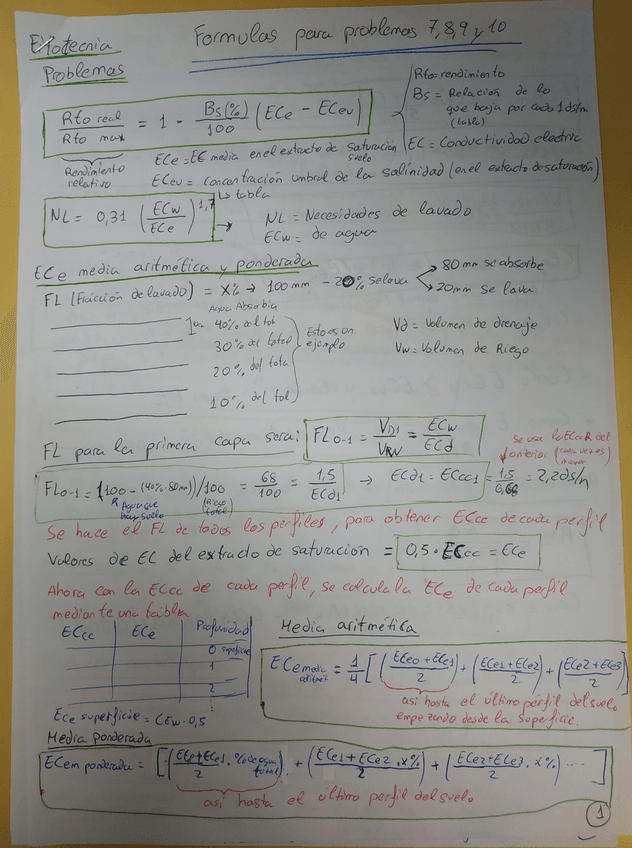 Fitotecnia
Problemas
Formulas para problemas 7, 8, 9 y 10
Rto real / Rto max = 1 - Bs(%)/100 (ECe - ECeu)
Rendimiento relativo
Rto = rendimiento
Bs = Relación de lo
que baja por cada 1 ds/m
(tabla)
EC = Conductividad electric
ECe = EC media en el extracto de saturación
suelo
ECeu = concentración umbral de la salinidad (en el extracto de saturación)
↳ tabla
NL = 0,31 (ECw/ECe)^1,7 →
NL = Necesidades de lavado
ECw = de agua
ECe media aritmética y ponderada
FL (Fracción de lavado) = X% → 100 mm - 20% se lava
80 mm se absorbe
20 mm se lava
Agua Absorbia
40% del tot
30% del total
20% del tota
10% del tol
Esto es un
ejemplo
Vd = Volumen de drenaje
Vw = Volumen de Riego
FL para la primera capa sera:
FL0-1 = VD1/VRW = ECw/ECd
se usa la ECccR del
anterior (cada vez es
mayor)
FL0-1 = (100 - (40% · 80 mm))/100 = 68/100 = 1,5/ECd1 → ECd1 = ECcc1 = 1,5/0,68 = 2,2 ds/m
Agua que
hay suelo
(Riego
total)
Se hace el FL de todos los perfiles, para obtener ECcc de cada perfil
Valores de EC del extracto de saturación = 0,5 · ECcc = ECe
Ahora con la ECcc de cada perfil, se calcula la ECe de cada perfil
mediante una tabla
ECcc ECe Profunidad
0 superficie
1
2
Ece superficie = CEw · 0,5
Media aritmética
ECe media aritmet = 1/4 [(ECe0 + ECe1)/2 + (ECe1 + ECe2)/2 + (ECe2 + ECe3)/2]
asi hasta el último perfil del suelo
empezando desde la superficie.
Media ponderada
ECem ponderada = [(ECe + ECe1)/2 · % de agua total) + (ECe1 + ECe2/2 · x%) + (ECe2 + ECe3/2 · x%) ····]
asi hasta el ultimo perfil del suelo
1